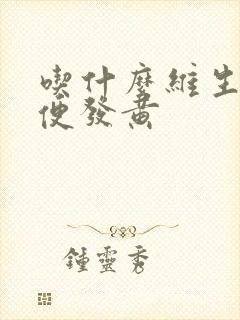 喫什麼維生
便發黃
鍾靈秀